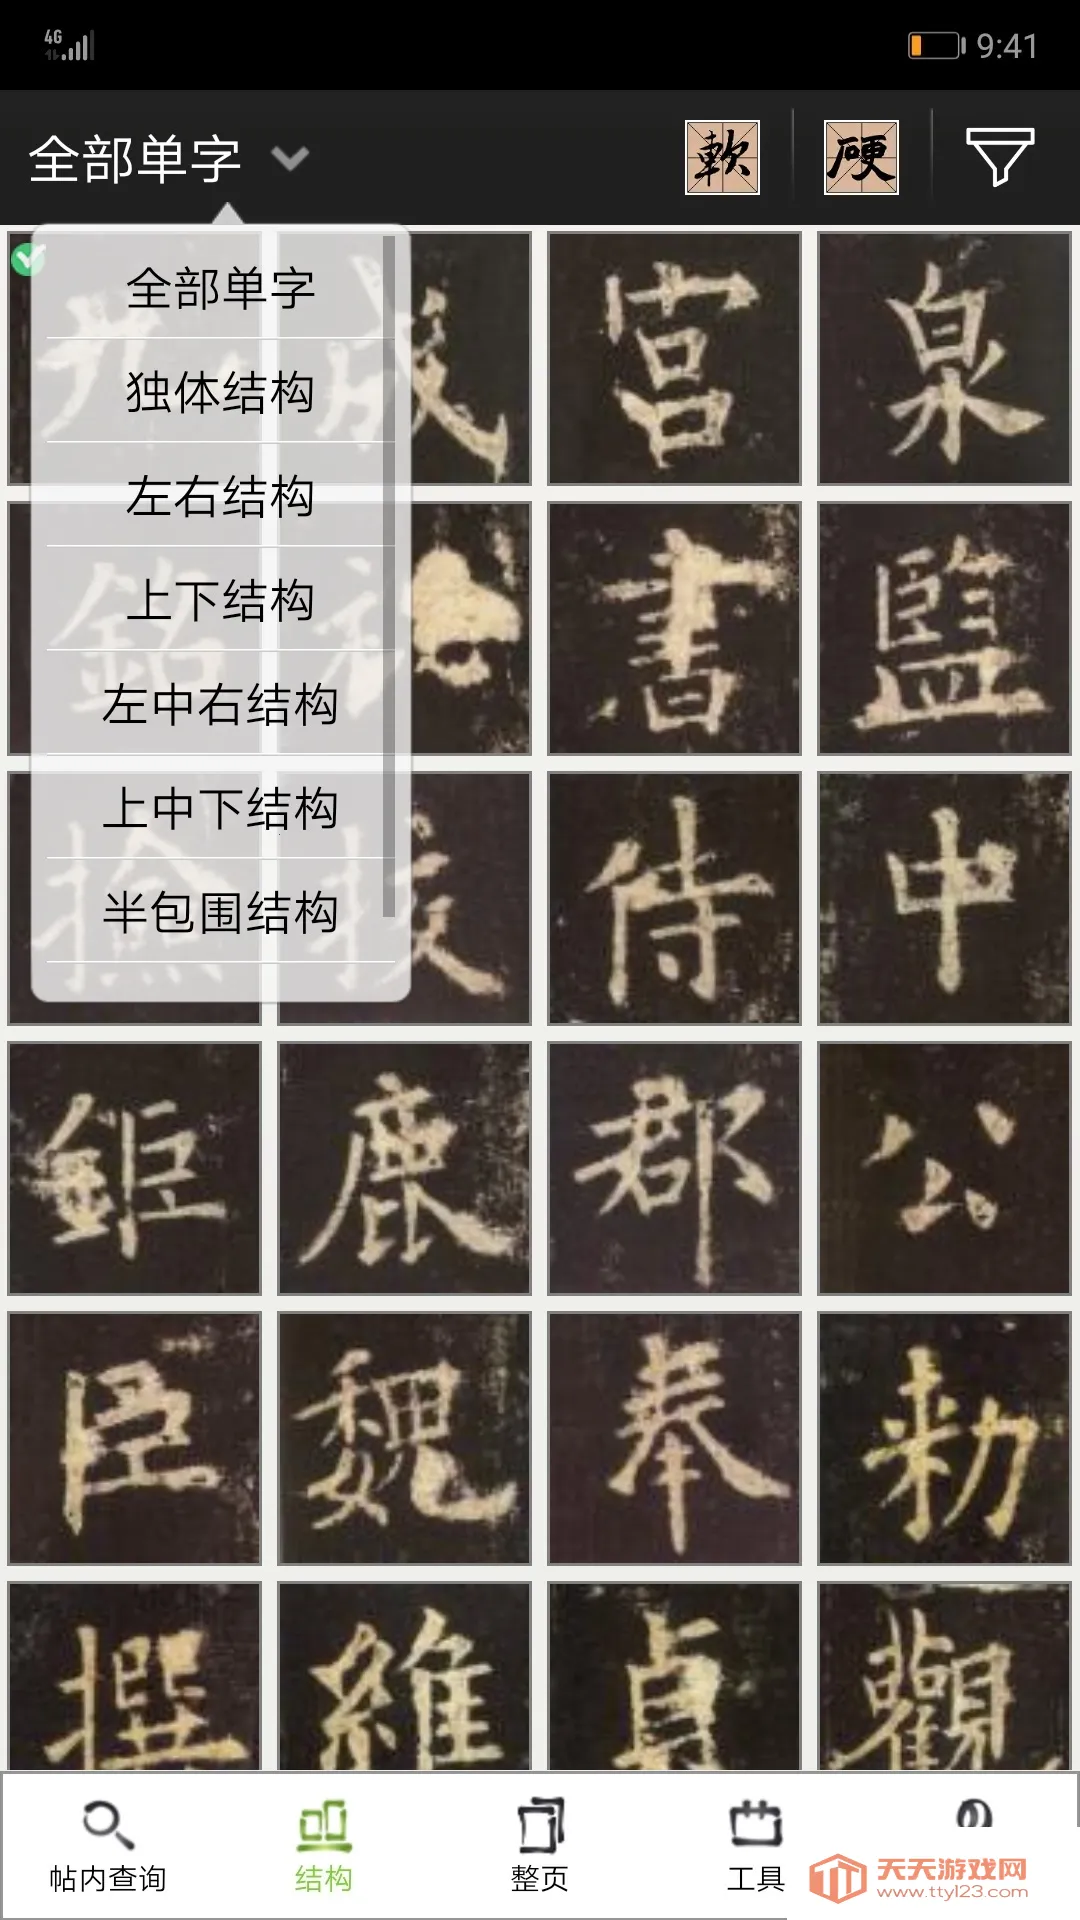 4G
9:41
全部单字
軟 硬
全部单字
独体结构
左右结构
上下结构
左中右结构
上中下结构
半包围结构
九 成 宮 泉
銘 秘 書 監
撿 校 侍 中
鉅 鹿 郡 公
臣 魏 奉 勑
撰 維 貞 觀
帖内查询
结构
整页
工具
天天游戏网
www.tty123.com